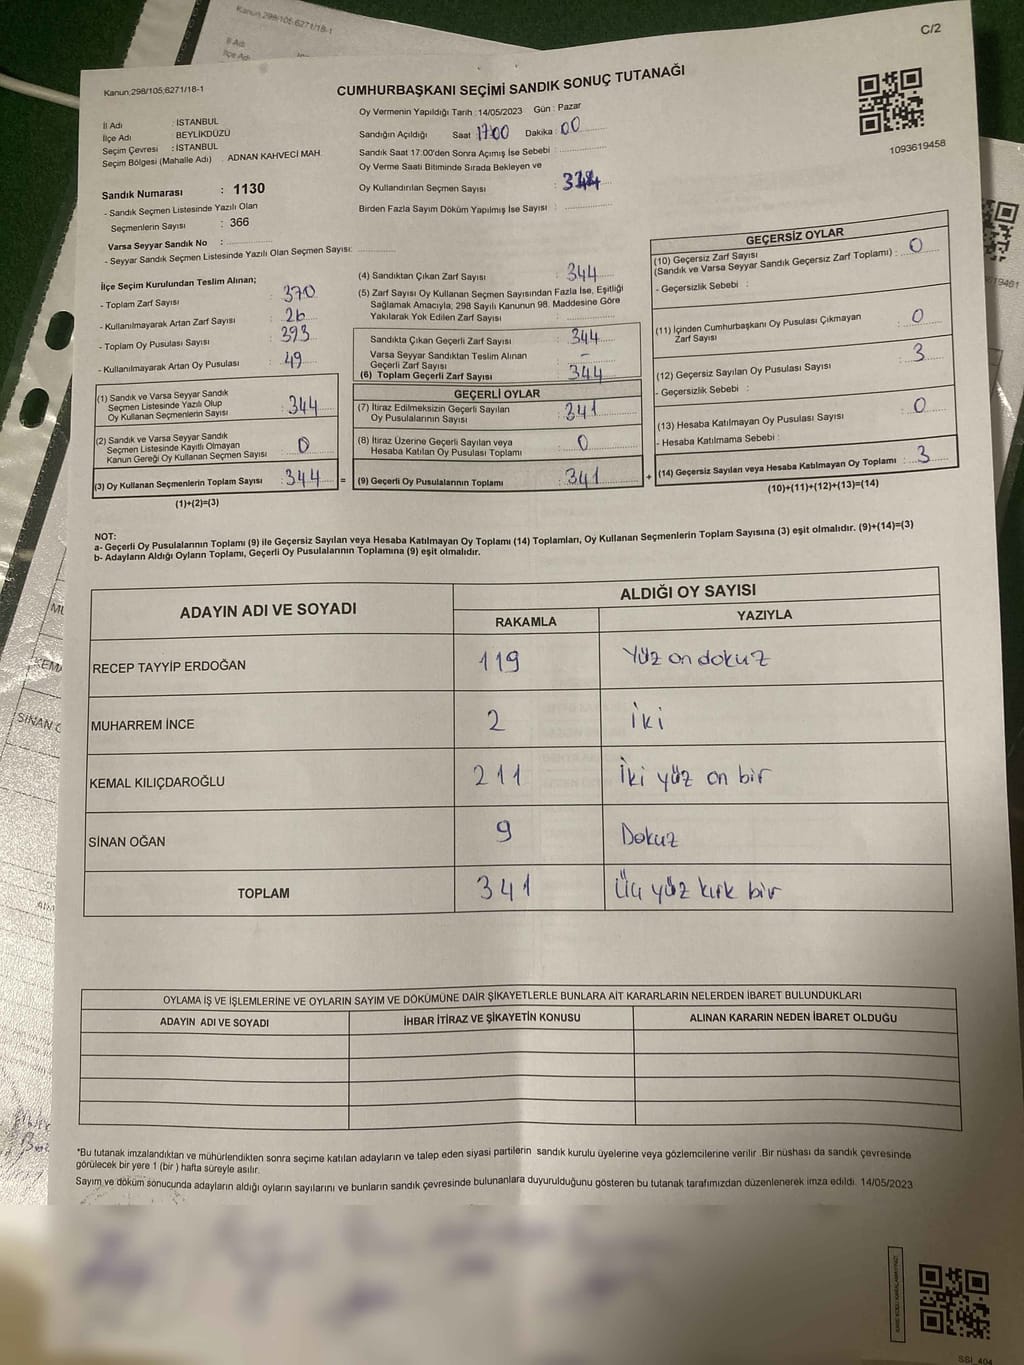 Kanun;298/105;6271/18-1
İl Adı
İlçe Adı
C/2
Kanun;298/105;6271/18-1
CUMHURBAŞKANI SEÇİMİ SANDIK SONUÇ TUTANAĞI
1093619458
İl Adı : İSTANBUL
İlçe Adı : BEYLİKDÜZÜ
Seçim Çevresi : İSTANBUL
Seçim Bölgesi (Mahalle Adı) : ADNAN KAHVECİ MAH.
Sandık Numarası : 1130
- Sandık Seçmen Listesinde Yazılı Olan
Seçmenlerin Sayısı : 366
Varsa Seyyar Sandık No :
- Seyyar Sandık Seçmen Listesinde Yazılı Olan Seçmen Sayısı:
Oy Vermenin Yapıldığı Tarih : 14/05/2023 Gün : Pazar
Sandığın Açıldığı Saat 17:00 Dakika : 00
Sandık Saat 17:00'den Sonra Açımış İse Sebebi :
Oy Verme Saati Bitiminde Sırada Bekleyen ve
Oy Kullandırılan Seçmen Sayısı : 344
Birden Fazla Sayım Döküm Yapılmış İse Sayısı :
İlçe Seçim Kurulundan Teslim Alınan;
- Toplam Zarf Sayısı : 370
- Kullanılmayarak Artan Zarf Sayısı : 26
- Toplam Oy Pusulası Sayısı : 393
- Kullanılmayarak Artan Oy Pusulası : 49
(1) Sandık ve Varsa Seyyar Sandık
Seçmen Listesinde Yazılı Olup
Oy Kullanan Seçmenlerin Sayısı : 344
(2) Sandık ve Varsa Seyyar Sandık
Seçmen Listesinde Kayıtlı Olmayan
Kanun Gereği Oy Kullanan Seçmen Sayısı : 0
(3) Oy Kullanan Seçmenlerin Toplam Sayısı : 344 =
(1)+(2)=(3)
(4) Sandıktan Çıkan Zarf Sayısı : 344
(5) Zarf Sayısı Oy Kullanan Seçmen Sayısından Fazla İse, Eşitliği
Sağlamak Amacıyla, 298 Sayılı Kanunun 98. Maddesine Göre
Yakılarak Yok Edilen Zarf Sayısı :
Sandıkta Çıkan Geçerli Zarf Sayısı : 344
Varsa Seyyar Sandıktan Teslim Alınan
Geçerli Zarf Sayısı : -
(6) Toplam Geçerli Zarf Sayısı : 344
GEÇERLİ OYLAR
(7) İtiraz Edilmeksizin Geçerli Sayılan
Oy Pusulalarının Sayısı : 341
(8) İtiraz Üzerine Geçerli Sayılan veya
Hesaba Katılan Oy Pusulası Toplamı : 0
(9) Geçerli Oy Pusulalarının Toplamı : 341 +
GEÇERSİZ OYLAR
(10) Geçersiz Zarf Sayısı
(Sandık ve Varsa Seyyar Sandık Geçersiz Zarf Toplamı) : 0
- Geçersizlik Sebebi :
(11) İçinden Cumhurbaşkanı Oy Pusulası Çıkmayan
Zarf Sayısı : 0
(12) Geçersiz Sayılan Oy Pusulası Sayısı : 3
- Geçersizlik Sebebi :
(13) Hesaba Katılmayan Oy Pusulası Sayısı : 0
- Hesaba Katılmama Sebebi :
(14) Geçersiz Sayılan veya Hesaba Katılmayan Oy Toplamı : 3
(10)+(11)+(12)+(13)=(14)
NOT:
a- Geçerli Oy Pusulalarının Toplamı (9) ile Geçersiz Sayılan veya Hesaba Katılmayan Oy Toplamı (14) Toplamları, Oy Kullanan Seçmenlerin Toplam Sayısına (3) eşit olmalıdır. (9)+(14)=(3)
b- Adayların Aldığı Oyların Toplamı, Geçerli Oy Pusulalarının Toplamına (9) eşit olmalıdır.
ADAYIN ADI VE SOYADI ALDIĞI OY SAYISI
RAKAMLA YAZIYLA
RECEP TAYYİP ERDOĞAN 119 Yüz on dokuz
MUHARREM İNCE 2 İki
KEMAL KILIÇDAROĞLU 211 İki yüz on bir
SİNAN OĞAN 9 Dokuz
TOPLAM 341 Üç yüz kırk bir
OYLAMA İŞ VE İŞLEMLERİNE VE OYLARIN SAYIM VE DÖKÜMÜNE DAİR ŞİKAYETLERLE BUNLARA AİT KARARLARIN NELERDEN İBARET BULUNDUKLARI
ADAYIN ADI VE SOYADI İHBAR İTİRAZ VE ŞİKAYETİN KONUSU ALINAN KARARIN NEDEN İBARET OLDUĞU
*Bu tutanak imzalandıktan ve mühürlendikten sonra seçime katılan adayların ve talep eden siyasi partilerin sandık kurulu üyelerine veya gözlemcilerine verilir .Bir nüshası da sandık çevresinde
görülecek bir yere 1 (bir ) hafta süreyle asılır.
Sayım ve döküm sonucunda adayların aldığı oyların sayılarını ve bunların sandık çevresinde bulunanlara duyurulduğunu gösteren bu tutanak tarafımızdan düzenlenerek imza edildi. 14/05/2023
SSI_404